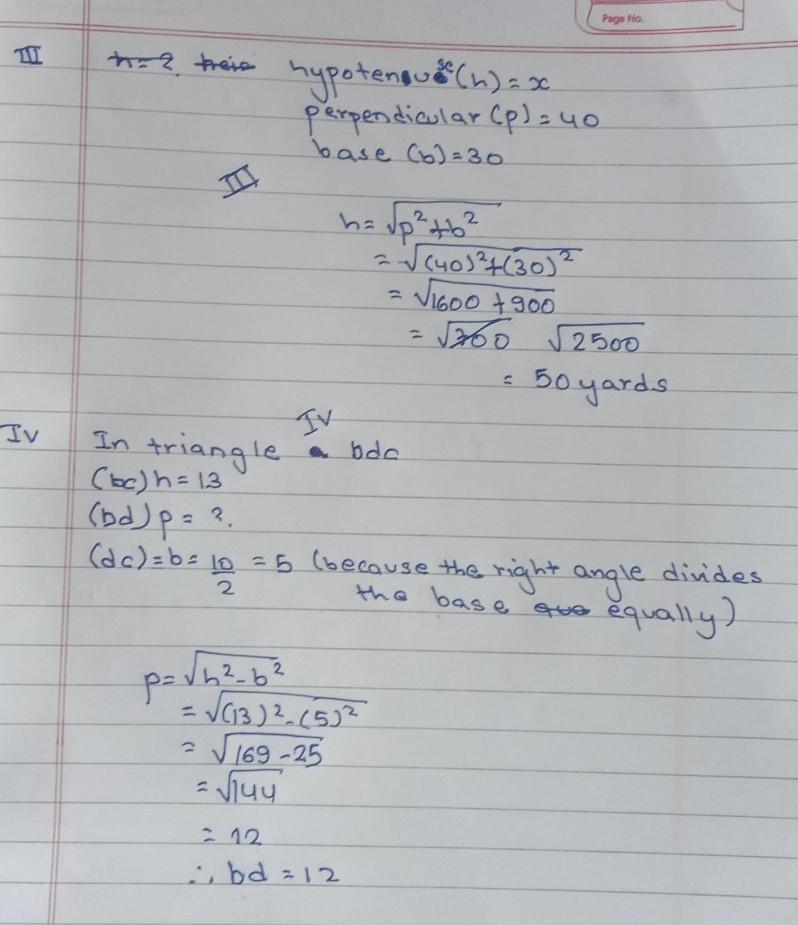 Page No.
III h=? hypotenuse(h)=x
perpendicular (p)=40
base (b)=30
III
h=√p²+b²
=√(40)²+(30)²
=√1600+900
=√700 √2500
= 50 yards
IV
IV In triangle bdc
(bc)h=13
(bd)p= ?.
(dc)=b=10/2=5 (because the right angle divides
the base equally)
p=√h²-b²
=√(13)²-(5)²
=√169-25
=√144
=12
∴ bd=12